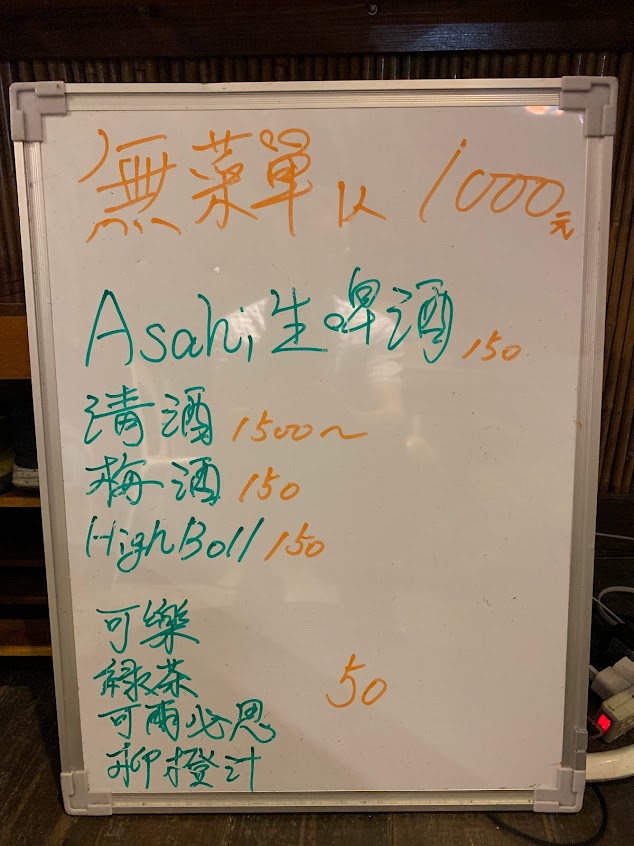 無菜單 1人 1000元
Asahi 生啤酒 150
清酒 1500~
梅酒 150
HighBoll 150
可樂
綠茶 50
可爾必思
柳橙汁